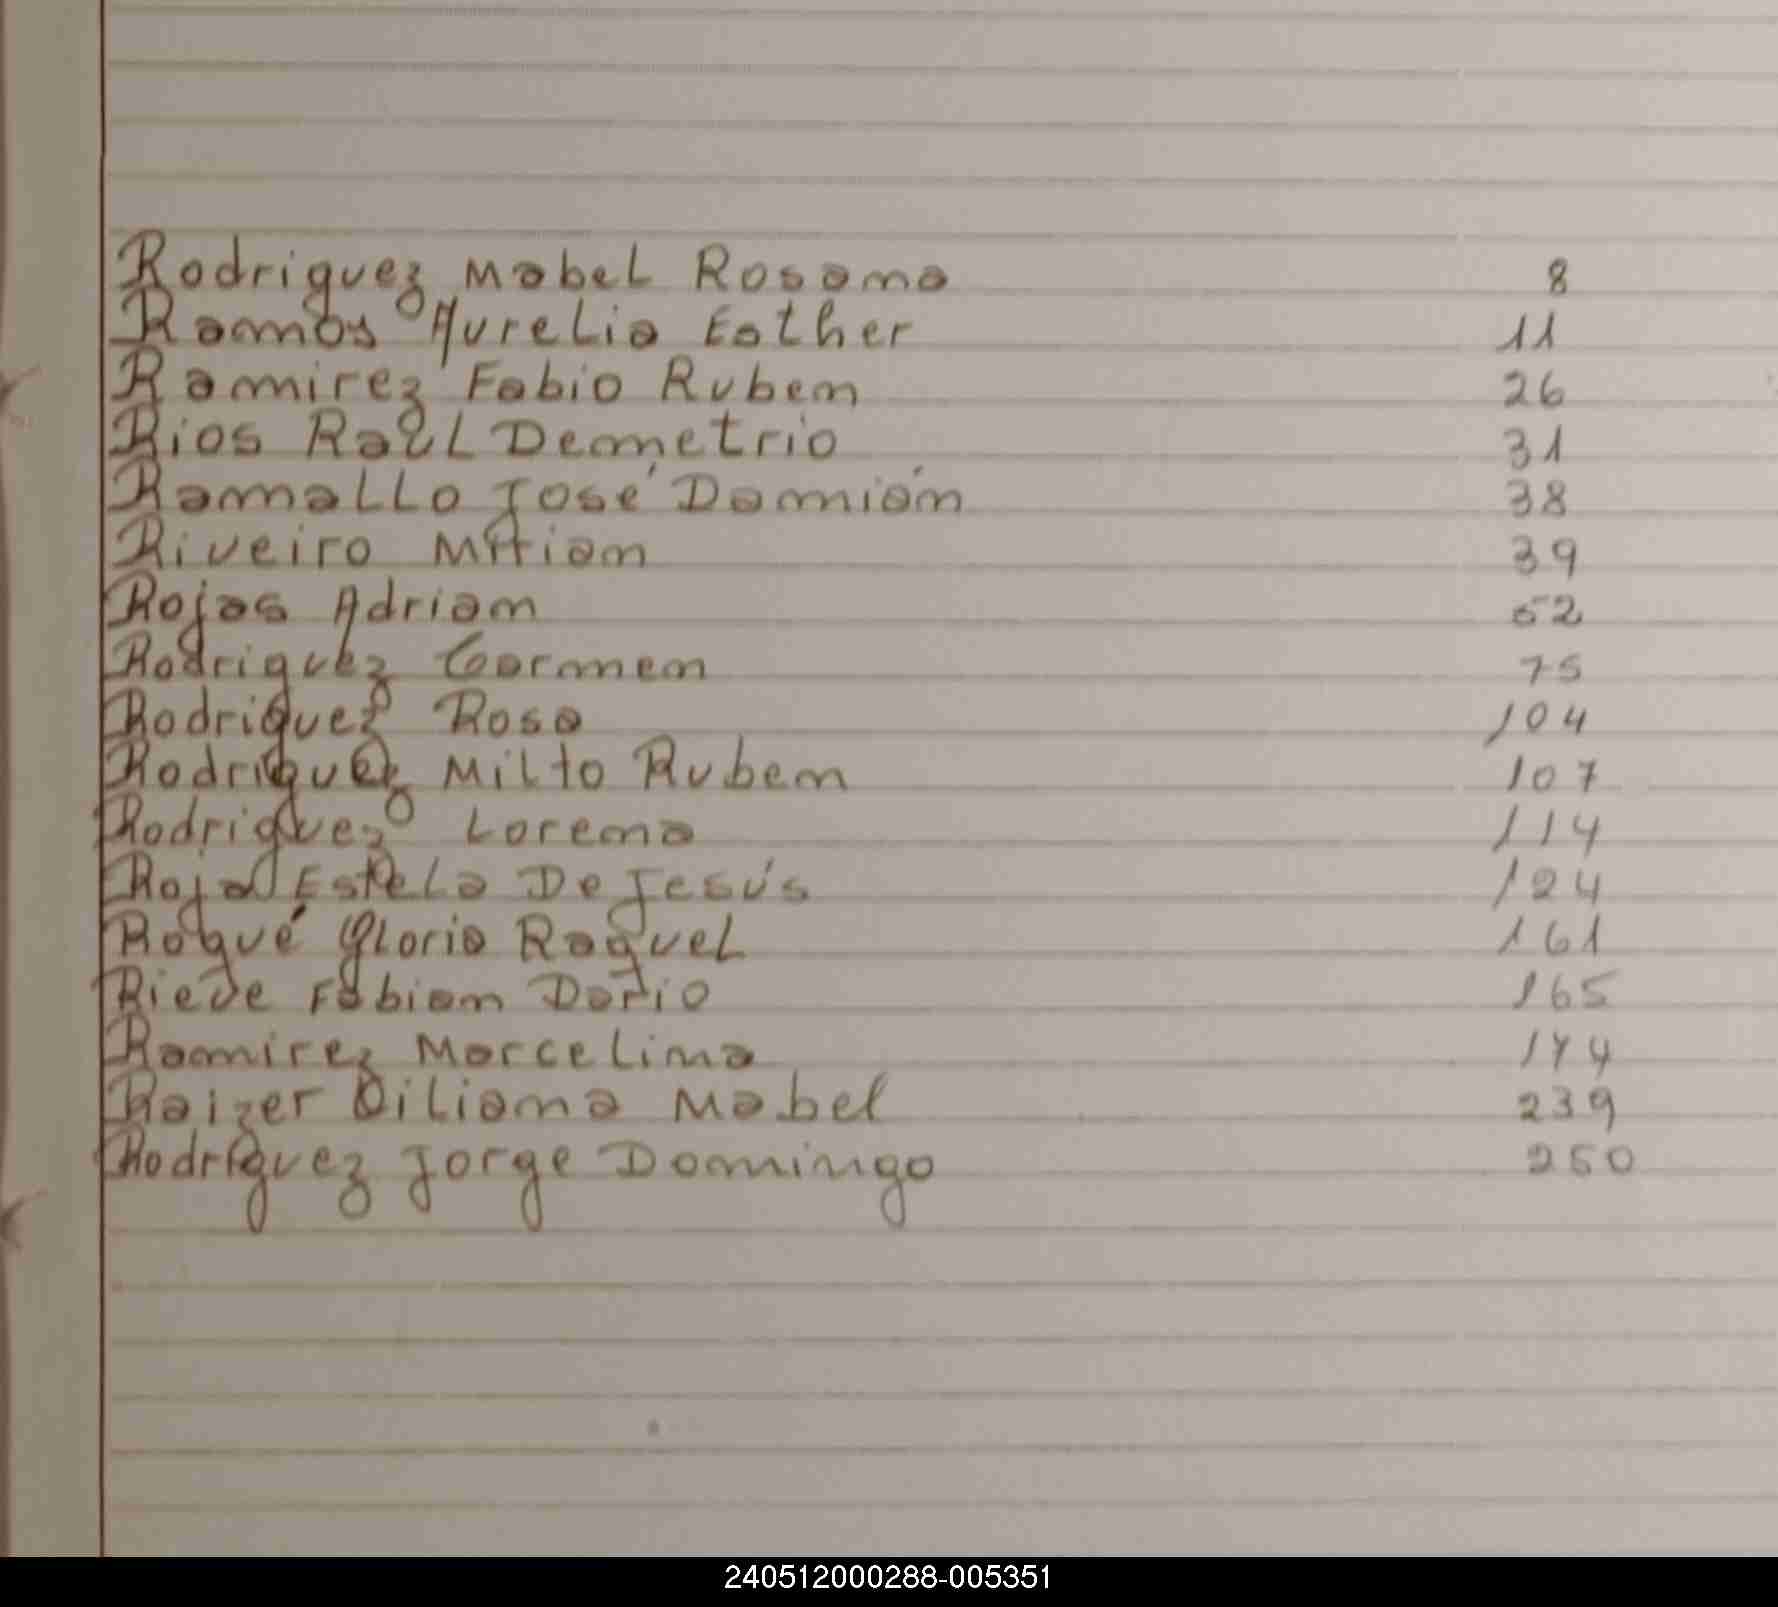 Rodriguez Mabel Rosana 8
Ramos Aurelia Esther 11
Ramirez Fabio Ruben 26
Rios Raúl Demetrio 31
Ramallo José Damián 38
Riveiro Miriam 39
Rojas Adrian 52
Rodriguez Carmen 75
Rodriguez Rosa 104
Rodriguez Milto Ruben 107
Rodriguez Lorena 114
Rojas Estela De Jesús 124
Roqué Gloria Raquel 161
Riede Fabian Dario 165
Ramirez Marcelina 174
Raizer Liliana Mabel 239
Rodriguez Jorge Domingo 250
240512000288-005351